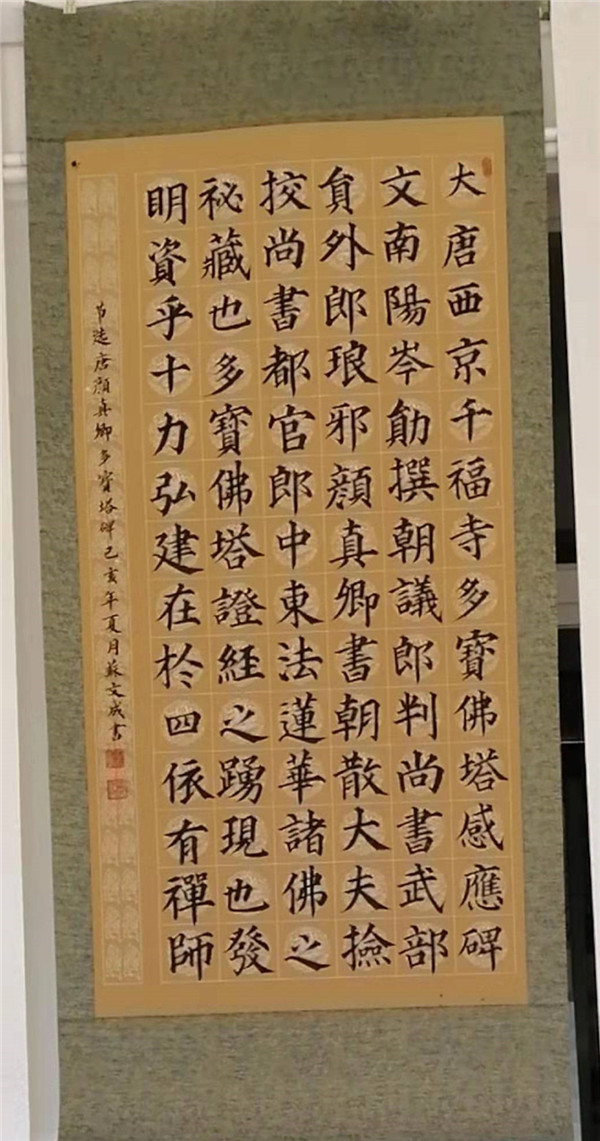 大唐西京千福寺多寶佛塔感應碑
文南陽岑勛撰朝議郎判尚書武部
貟外郎琅邪顔真卿書朝散大夫撿
挍尚書都官郎中東法蓮華諸佛之
祕藏也多寶佛塔證經之踴現也發
明資乎十力弘建在扵四依有禪師
节选唐顔真卿多寶塔碑己亥年夏月蘇文成書